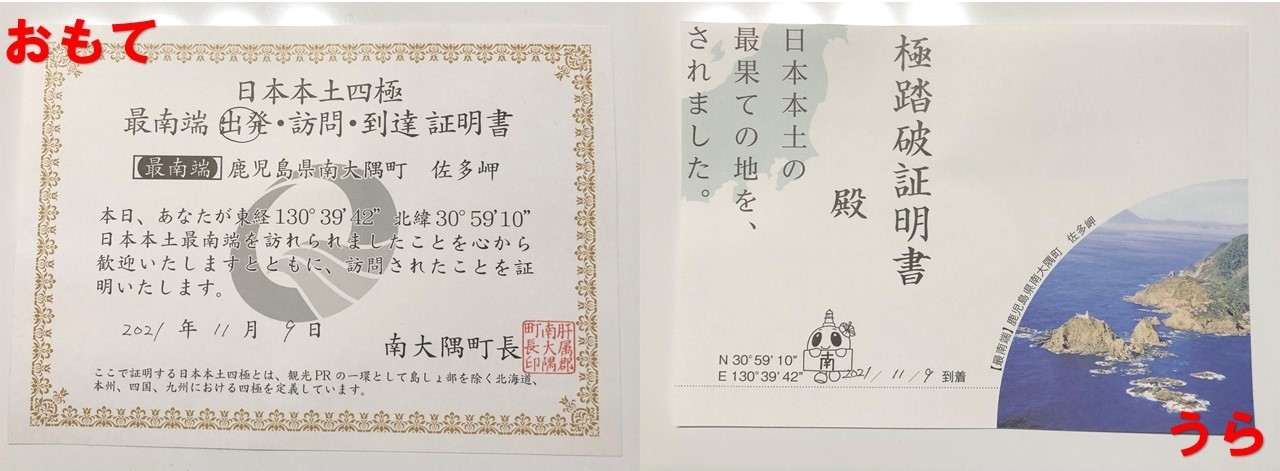 おもて
日本本土四極
最南端 出発・訪問・到達 証明書
【最南端】鹿児島県南大隅町 佐多岬
本日、あなたが東経130°39’42” 北緯30°59’10”
日本本土最南端を訪れられましたことを心から
歓迎いたしますとともに、訪問されたことを証
明いたします。
2021 年 11 月 9 日
南大隅町長
肝属郡
南大隅
町長印
ここで証明する日本本土四極とは、観光PRの一環として島しょ部を除く北海道、
本州、四国、九州における四極を定義しています。
極踏破証明書
殿
日本本土の
最果ての地を、
されました。
【最南端】鹿児島県南大隅町 佐多岬
南
N 30°59’10”
E 130°39’42” 2021/11/9 到着
うら